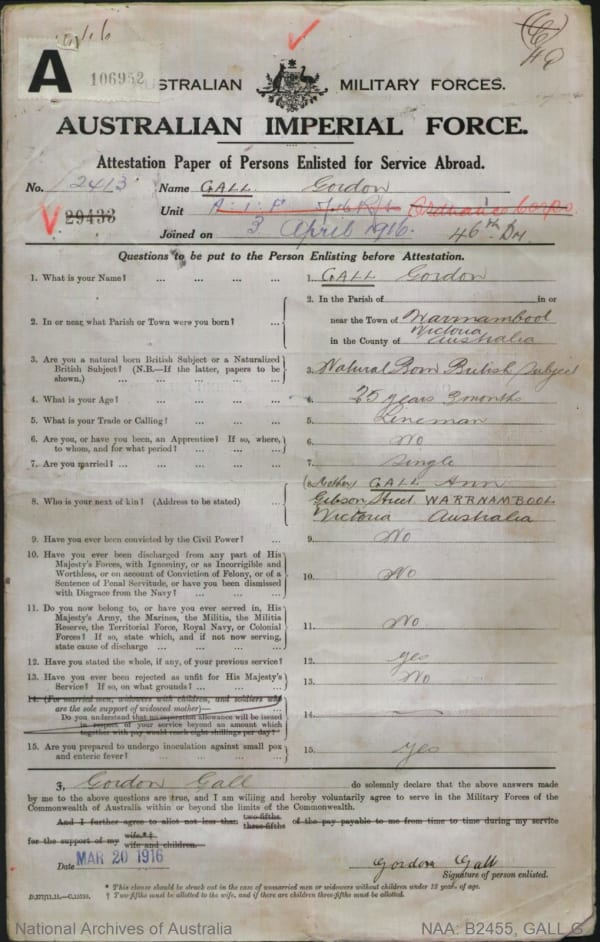 A 106952
AUSTRALIAN MILITARY FORCES.
AUSTRALIAN IMPERIAL FORCE.
Attestation Paper of Persons Enlisted for Service Abroad.
No. 2413 Name GALL Gordon
29433 Unit A.I.F. Ordnance Corps.
Joined on 3 April 1916. 46th Bn
Questions to be put to the Person Enlisting before Attestation.
1. What is your Name? ... ... ... ... 1. GALL Gordon
2. In or near what Parish or Town were you born? ... 2. In the Parish of in or
near the Town of Warrnambool
Victoria
in the County of Australia
3. Are you a natural born British Subject or a Naturalized
British Subject? (N.B.—If the latter, papers to be
shown.) ... ... ... ... ... 3. Natural Born British Subject
4. What is your Age? ... ... ... ... 4. 25 years 3 months
5. What is your Trade or Calling? ... ... ... 5. Lineman
6. Are you, or have you been, an Apprentice? If so, where,
to whom, and for what period? ... ... ... 6. No
7. Are you married? ... ... ... ... 7. Single
8. Who is your next of kin? (Address to be stated) ... 8. (Mother) GALL Ann
Gibson Street WARRNAMBOOL
Victoria Australia
9. Have you ever been convicted by the Civil Power? ... 9. No
10. Have you ever been discharged from any part of His
Majesty's Forces, with Ignominy, or as Incorrigible and
Worthless, or on account of Conviction of Felony, or of a
Sentence of Penal Servitude, or have you been dismissed
with Disgrace from the Navy? ... ... ... 10. No
11. Do you now belong to, or have you ever served in, His
Majesty's Army, the Marines, the Militia, the Militia
Reserve, the Territorial Force, Royal Navy, or Colonial
Forces? If so, state which, and if not now serving,
state cause of discharge ... ... ... ... 11. No
12. Have you stated the whole, if any, of your previous service? 12. Yes
13. Have you ever been rejected as unfit for His Majesty's
Service? If so, on what grounds? ... ... ... 13. No
14. (For married men, widowers with children, and soldiers who
are the sole support of widowed mother)—
Do you understand that no separation allowance will be issued
in respect of your service beyond an amount which
together with pay would reach eight shillings per day? 14. —
15. Are you prepared to undergo inoculation against small pox
and enteric fever? ... ... ... ... 15. Yes
I, Gordon Gall do solemnly declare that the above answers made
by me to the above questions are true, and I am willing and hereby voluntarily agree to serve in the Military Forces of the
Commonwealth of Australia within or beyond the limits of the Commonwealth.
And I further agree to allot not less than two-fifths three-fifths of the pay payable to me from time to time during my service
for the support of my wife.*† wife and children.
Date MAR 20 1916 Gordon Gall
Signature of person enlisted.
* This clause should be struck out in the case of unmarried men or widowers without children under 18 years of age.
† Two fifths must be allotted to the wife, and if there are children three-fifths must be allotted.
National Archives of Australia NAA: B2455, GALL G